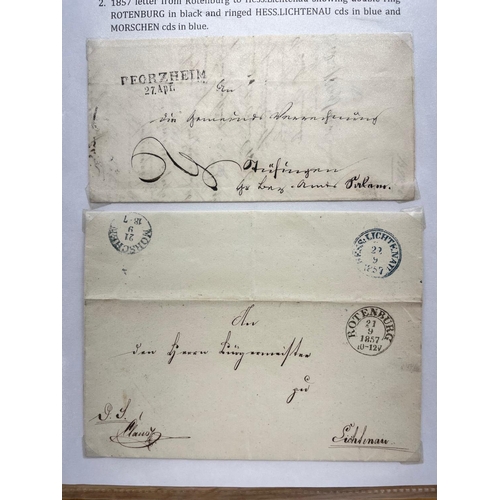 2. 1857 letter from Rotenburg to Hess.Lichtenau showing double ring
ROTENBURG in black and ringed HESS.LICHTENAU cds in blue and
MORSCHEN cds in blue.
PFORZHEIM
27. Apr.
An
die Gemeinds Verrechnung
Stüfingen
Gr. Bez. Amts Salem.
MORSCHEN
21
9
HESS:LICHTENAU
22
9
1857
ROTENBURG
21
9
1857
10-12V
An
den Herrn Bürgermeister
zu
D. S.
Lichtenau